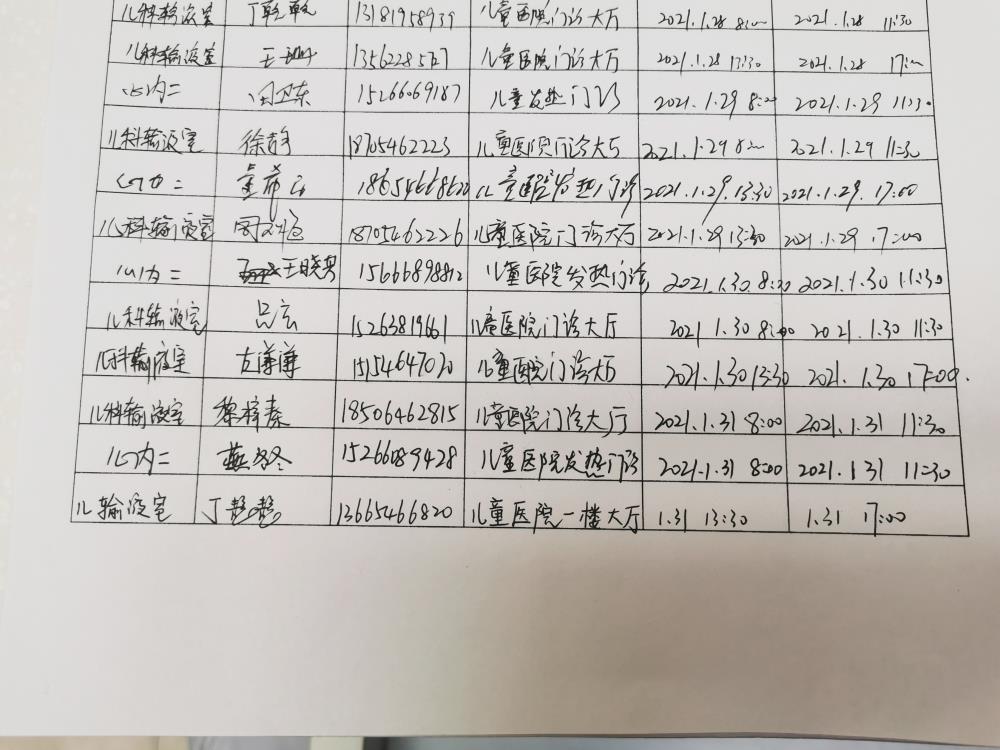 儿科输液室 丁乾乾 13181958939 儿童医院门诊大厅 2021.1.28 8:00 2021.1.28 11:30
儿科输液室 王 儿童医院门诊大厅 2021.1.28 13:30 2021.1.28 17:00
心内二 闫卫东 15266069187 儿童发热门诊 2021.1.29 8:00 2021.1.29 11:30
儿科输液室 徐静 18705462223 儿童医院门诊大厅 2021.1.29 8:00 2021.1.29 11:30
心内二 18654668620 儿童医院发热门诊 2021.1.29.13:30 2021.1.29. 17:00
儿科输液室 周 18705462226 儿童医院门诊大厅 2021.1.29 13:30 2021.1.29 17:00
心内二 王晓男 15666898812 儿童医院发热门诊 2021.1.30.8:30 2021.1.30 11:30
儿科输液室 吕云 15263819661 儿童医院门诊大厅 2021 1.30 8:00 2021.1.30 11:30
儿科输液室 左潇潇 15154647020 儿童医院门诊大厅 2021.1.30 13:30 2021.1.30 17:00.
儿科输液室 魏梓秦 18506462815 儿童医院门诊大厅 2021.1.31 8:00 2021.1.31 11:30
心内二 燕冬冬 15266089428 儿童医院发热门诊 2021.1.31 8:00 2021.1 31 11:30
儿输液室 丁慧慧 13665466820 儿童医院一楼大厅 1.31 13:30 1.31 17:00